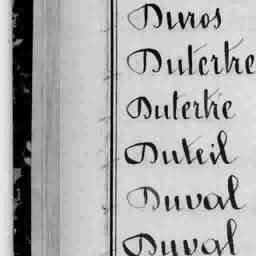 Duros
Dutertre
Dutertre
Duteil
Duval
Duval